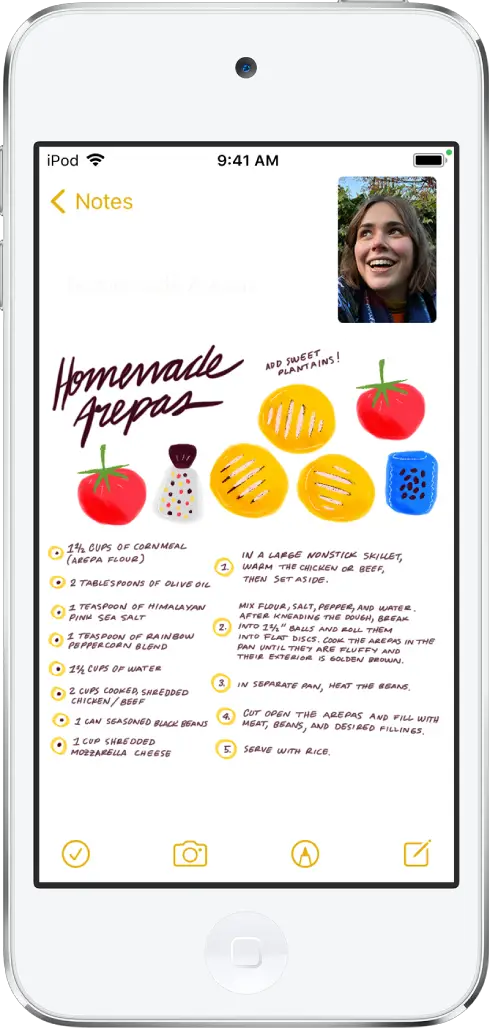 iPod 9:41 AM
Notes
Homemade
Arepas
ADD SWEET
PLANTAINS!
1½ CUPS OF CORNMEAL
(AREPA FLOUR)
2 TABLESPOONS OF OLIVE OIL
1 TEASPOON OF HIMALAYAN
PINK SEA SALT
1 TEASPOON OF RAINBOW
PEPPERCORN BLEND
1½ CUPS OF WATER
2 CUPS COOKED, SHREDDED
CHICKEN/BEEF
1 CAN SEASONED BLACK BEANS
1 CUP SHREDDED
MOZZARELLA CHEESE
1. IN A LARGE NONSTICK SKILLET,
WARM THE CHICKEN OR BEEF,
THEN SET ASIDE.
2. MIX FLOUR, SALT, PEPPER, AND WATER.
AFTER KNEADING THE DOUGH, BREAK
INTO 1½" BALLS AND ROLL THEM
INTO FLAT DISCS. COOK THE AREPAS IN THE
PAN UNTIL THEY ARE FLUFFY AND
THEIR EXTERIOR IS GOLDEN BROWN.
3. IN SEPARATE PAN, HEAT THE BEANS.
4. CUT OPEN THE AREPAS AND FILL WITH
MEAT, BEANS, AND DESIRED FILLINGS.
5. SERVE WITH RICE.